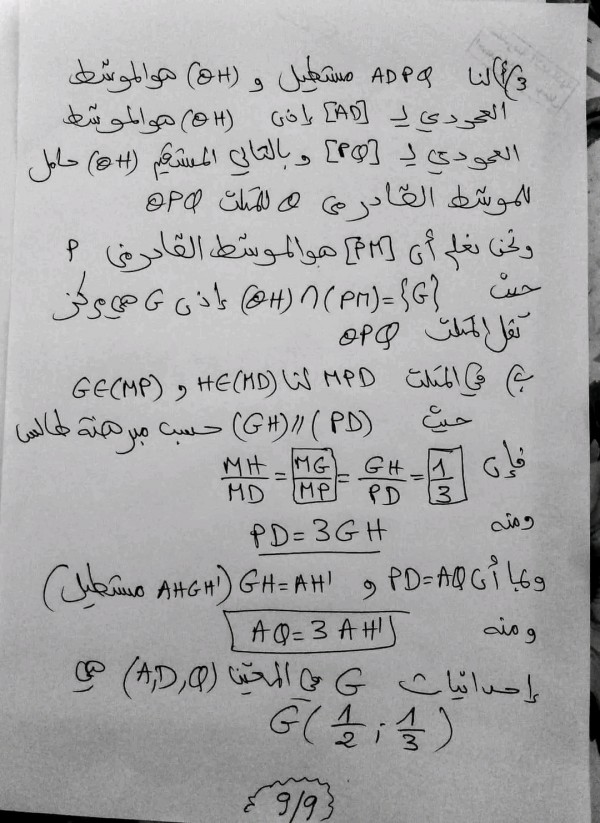 3) أ) لنا ADPQ مستطيل و (OH) هو الموسّط
العمودي لـ [AD] إذن (OH) هو الموسّط
العمودي لـ [PQ] وبالتالي المستقيم (OH) حامل
للموسّط الصادر من O للمثلث OPQ
ونحن نعلم أن [PM] هو الموسّط الصادر من P
حيث (OH)∩(PM)={G} إذن G هي مركز
ثقل المثلث OPQ
ب) في المثلث MPD لنا H∈(MD) و G∈(MP)
حيث (GH)//(PD) حسب مبرهنة طالس
فإن MH/MD = MG/MP = GH/PD = 1/3
ومنه PD=3GH
وبما أن PD=AQ و GH=AH' (AHGH' مستطيل)
ومنه AQ=3AH'
إحداثيات G في المعيّن (A,D,Q) هي
G(1/2 ; 1/3)
9/9